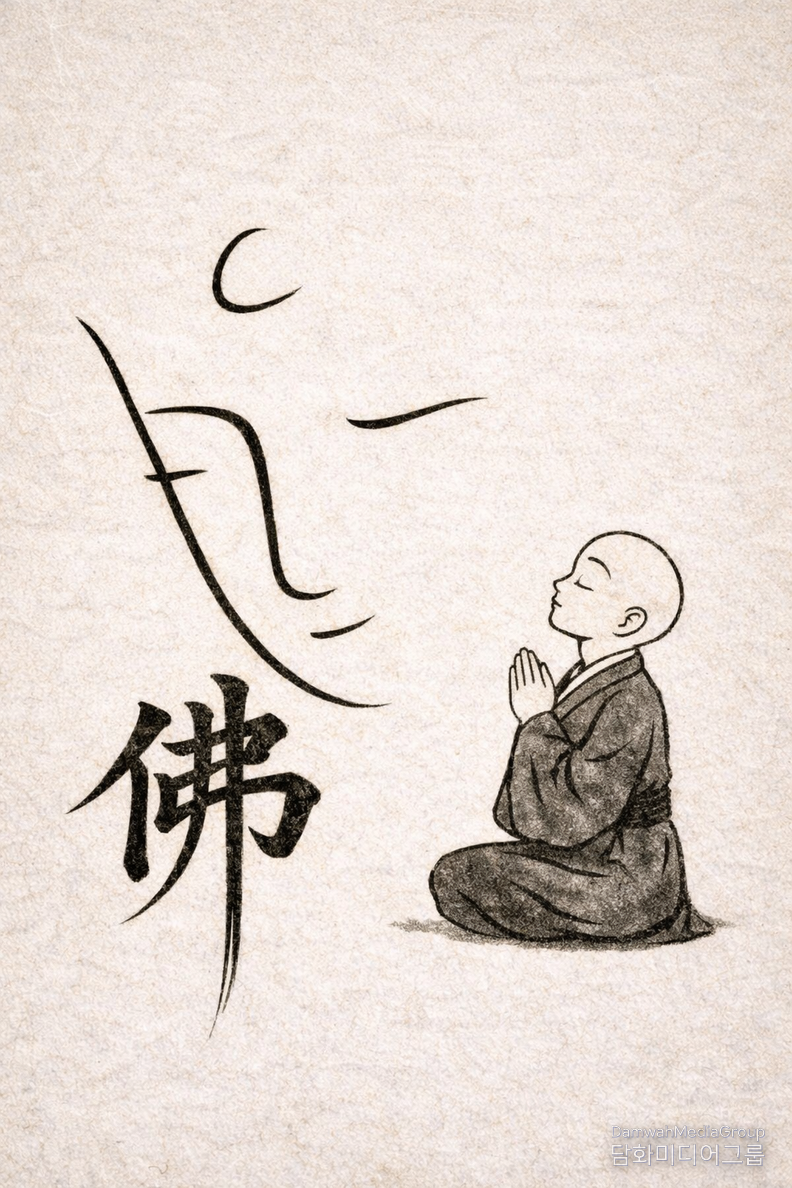 佛
DamwhaMediaGroup
담화미디어그룹